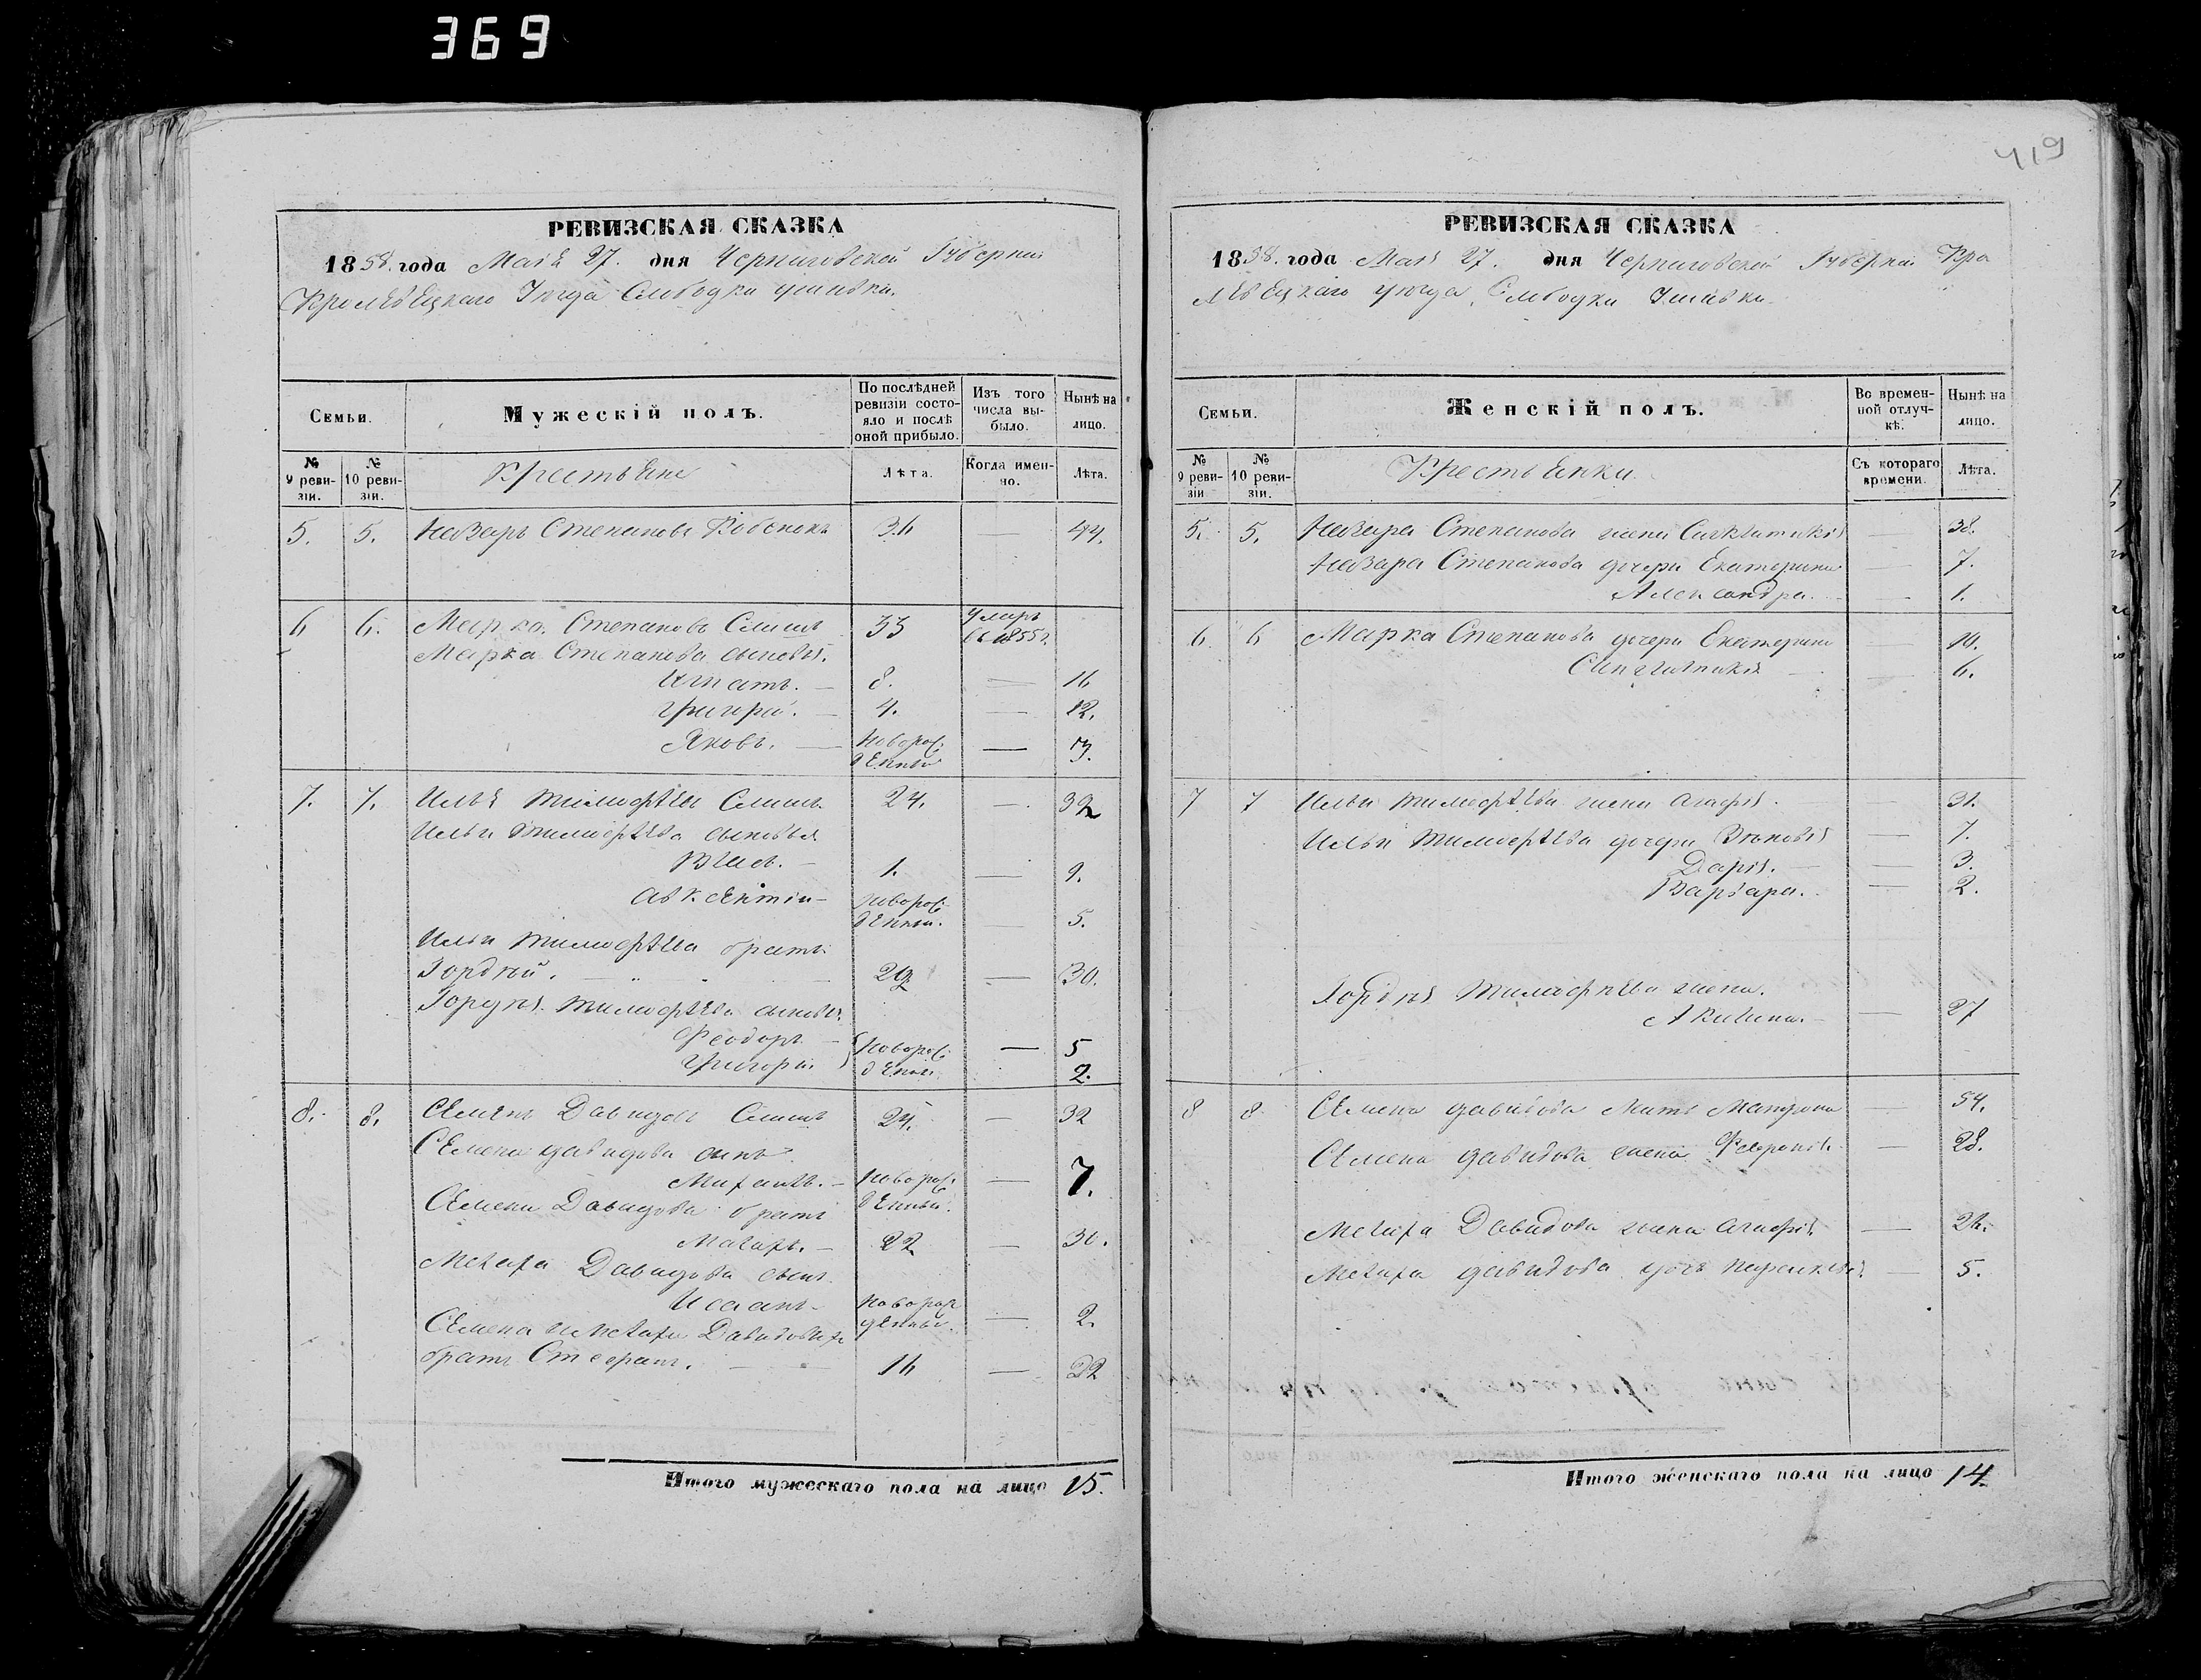 369
419
РЕВИЗСКАЯ СКАЗКА
1858. года Мая 27. дня Черниговской Губернии
Кролевецкаго Уезда Слободки
Семьи.
Мужескій полъ.
По послѣдней ревизіи состояло и послѣ оной прибыло.
Изъ того числа выбыло.
Нынѣ на лицо.
№ 9 ревизіи.
№ 10 ревизіи.
Крестьяне
Лѣта.
Когда именно.
Лѣта.
5. 5. Назаръ Степановъ 36 — 44.
6 6. Марко Степановъ 33 Умеръ въ 1855 г.
Марка Степанова сыновья.
Игнатъ. — 8. — 16
Григорій. — 4. — 12.
Яковъ. — Новорожденный — 3.
7. 7. Илья Тимофѣевъ 24. — 32
Ильи Тимофѣева сыновья
Власъ. — 1. — 9.
Авксентій — новорожденный. — 5.
Ильи Тимофѣева братъ
Гордѣй. — 22 — 30.
Гордѣя Тимофѣева сыновья
Феодоръ — Новорож — 5
Григорій денные 2.
8. 8. Семенъ Давидовъ 24. — 32
Семена Давидова сынъ
Михаилъ. — Новорожденный. — 7.
Семена Давидова братъ
Макаръ. — 22 — 30.
Макара Давидова сынъ
Исаакъ — Новорожденный. — 2.
Семена и Макара Давидовыхъ
братъ Стефанъ. — 16 — 22
Итого мужескаго пола на лицо 15.
РЕВИЗСКАЯ СКАЗКА
1858. года Мая 27. дня Черниговской Губернии Кро
левецкаго уезда, Слободки
Семьи.
Женскій полъ.
Во временной отлучкѣ.
Нынѣ на лицо.
№ 9 ревизіи
№ 10 ревизіи.
Крестьянки
Съ котораго времени.
Лѣта.
5. 5. Назара Степанова жена — 38.
Назара Степанова дочери Екатерина — 7.
Александра. — 1.
6. 6 Марка Степанова дочери Екатерина — 10.
— 6.
7 7 Ильи Тимофѣева жена Агафія. — 31.
Ильи Тимофѣева дочери Зѣновія — 7.
Дарія. — 3.
Варвара. — 2.
Гордѣя Тимофѣева жена.
Акилина. — 27
8 8. Семена Давидова мать Матрона — 54.
Семена Давидова жена Февронія — 28.
Макара Давидова жена Агафія — 26.
Макара Давидова дочь Параскевія — 5.
Итого женскаго пола на лицо 14.